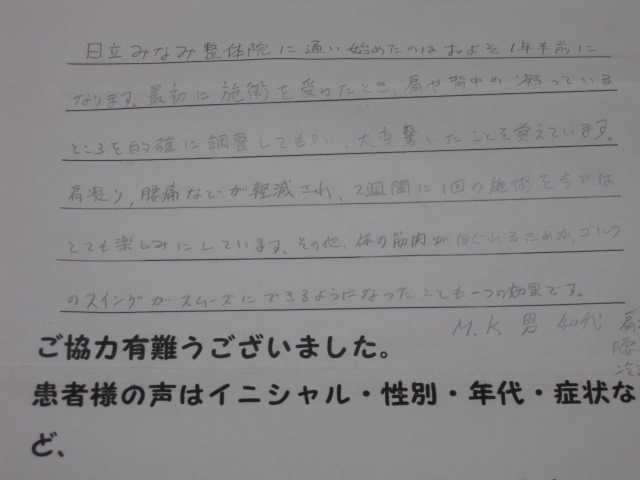 日立みなみ整体院に通い始めたのはおよそ1年半前に
なります。最初に施術を受けたとき、肩や背中の凝っている
ところを的確に調整してもらい、大変驚いたことを覚えています。
肩凝り、腰痛などが軽減され、2週間に1回の施術を今では
とても楽しみにしています。その他、体の筋肉がほぐれるためか、ゴルフ
のスイングがスムーズにできるようになったことも一つの効果です。
M.K 男 40代 肩
腰
冷
ご協力有難うございました。
患者様の声はイニシャル・性別・年代・症状な
ど、